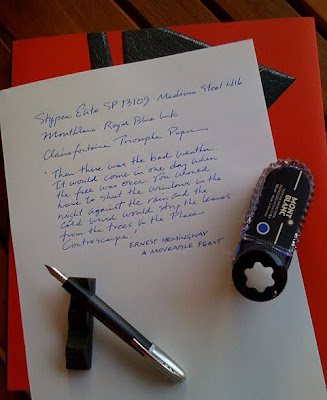 Stypen Elite SP 13109 Medium Steel Nib
Montblanc Royal Blue Ink
Clairefontaine Triomphe Paper
'Then there was the bad weather.
It would come in one day when
the fall was over. You would
have to shut the windows in the
night against the rain and the
cold wind would strip the leaves
from the trees in the Place
Contrescarpe.'
ERNEST HEMINGWAY
A MOVEABLE FEAST
MONT
BLANC